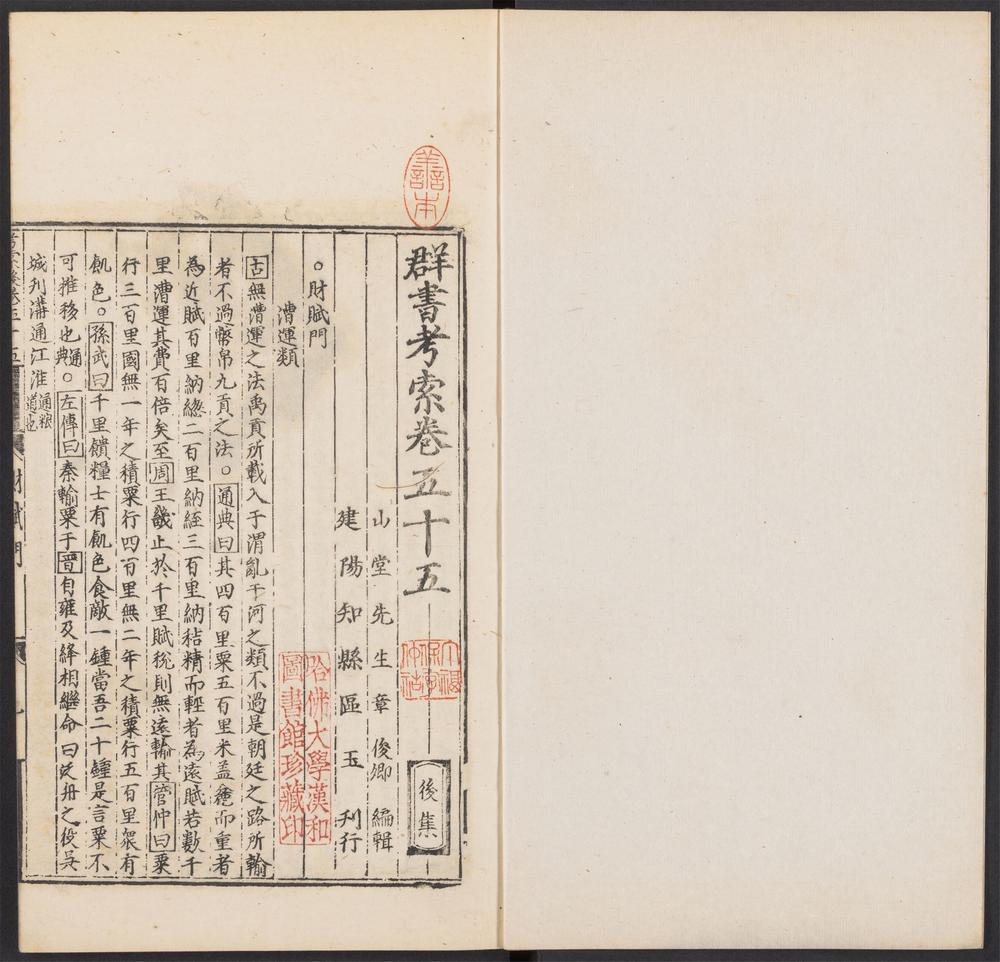 善本
群書考索卷五十五
後集
山堂先生章俊卿編輯
建陽知縣區玉刊行
哈佛大學漢和
圖書館珍藏印
○財賦門
漕運類
古無漕運之法禹貢所載入于渭亂于河之類不過是朝廷之路所輸
者不過幣帛九貢之法○通典曰其四百里粟五百里米盖麄而重者
為近賦百里納緫二百里納絰三百里納秸精而輕者為遠賦若數千
里漕運其費百倍矣至周王畿止於千里賦稅則無遠輸其管仲曰粟
行三百里國無一年之積粟行四百里無二年之積粟行五百里衆有
飢色○孫武曰千里饋糧士有飢色食敵一鍾當吾二十鍾是言粟不
可推移也通典○左傳曰秦輸粟于晉自雍及絳相繼命曰泛舟之役吳
城刋溝通江淮通粮道也
財賦門